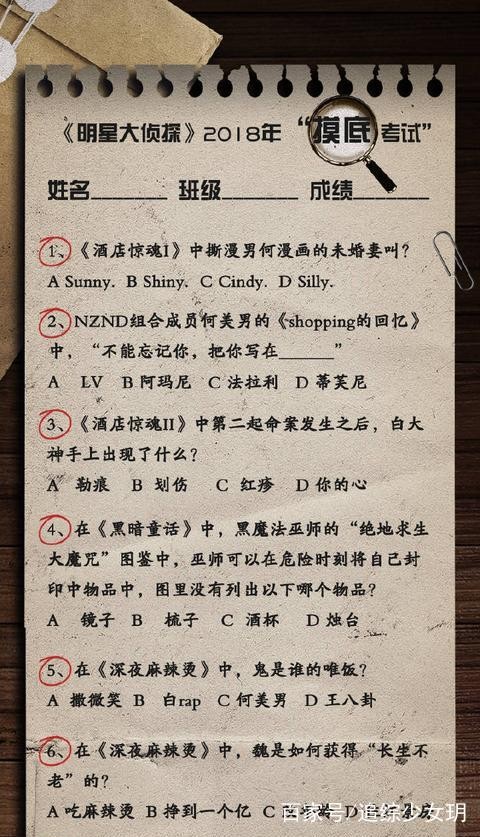 《明星大侦探》2018年“摸底考试”
姓名______ 班级______ 成绩______
1、《酒店惊魂I》中撕漫男何漫画的未婚妻叫？
A Sunny. B Shiny. C Cindy. D Silly.
2、NZND组合成员何美男的《shopping的回忆》
中，“不能忘记你，把你写在______”
A LV B 阿玛尼 C 法拉利 D 蒂芙尼
3、《酒店惊魂II》中第二起命案发生之后，白大
神手上出现了什么？
A 勒痕 B 划伤 C 红疹 D 你的心
4、在《黑暗童话》中，黑魔法巫师的“绝地求生
大魔咒”图鉴中，巫师可以在危险时刻将自己封
印中物品中，图里没有列出以下哪个物品？
A 镜子 B 梳子 C 酒杯 D 烛台
5、在《深夜麻辣烫》中，鬼是谁的唯饭？
A 撒微笑 B 白rap C 何美男 D 王八卦
6、在《深夜麻辣烫》中，魏是如何获得“长生不
老”的？
A 吃麻辣烫 B 挣到一个亿 C D
百家号/追综少女玥